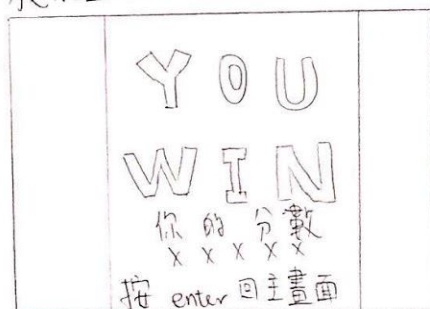 YOU
WIN
你的分數
XXXXX
按 enter 回主畫面